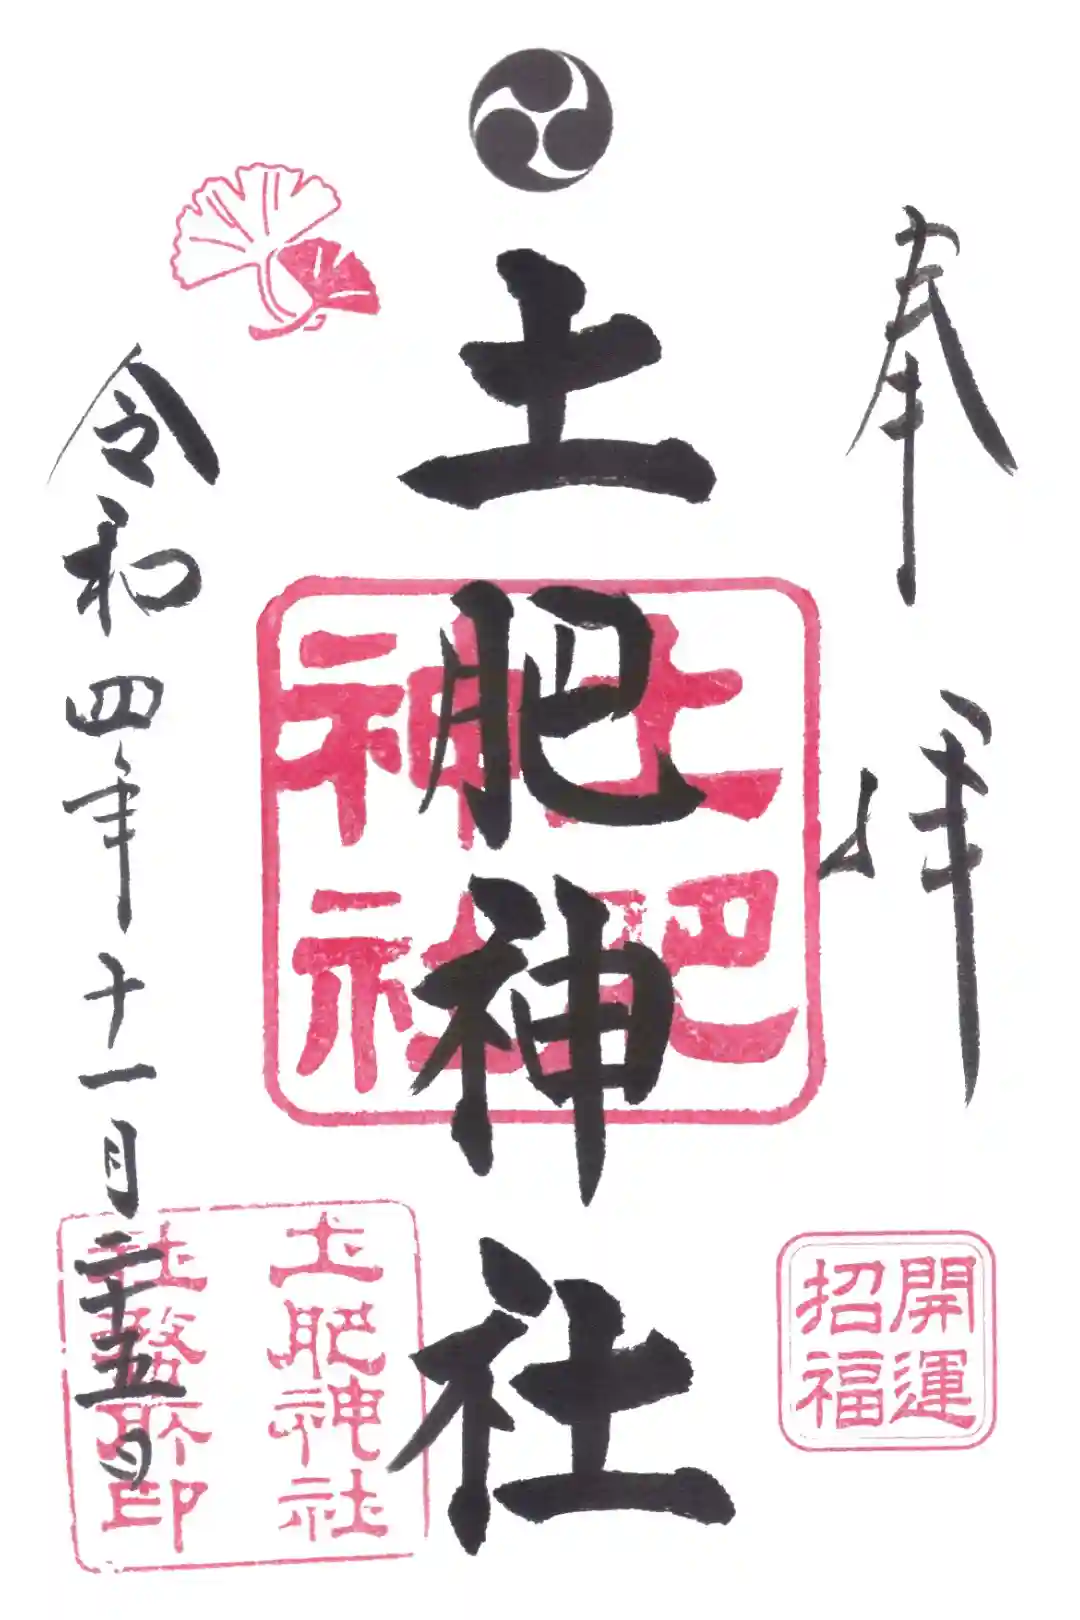 奉拝
開運
招福
土肥神社
土肥
神社
土肥神社
社務所印
令和四年十一月二十五日